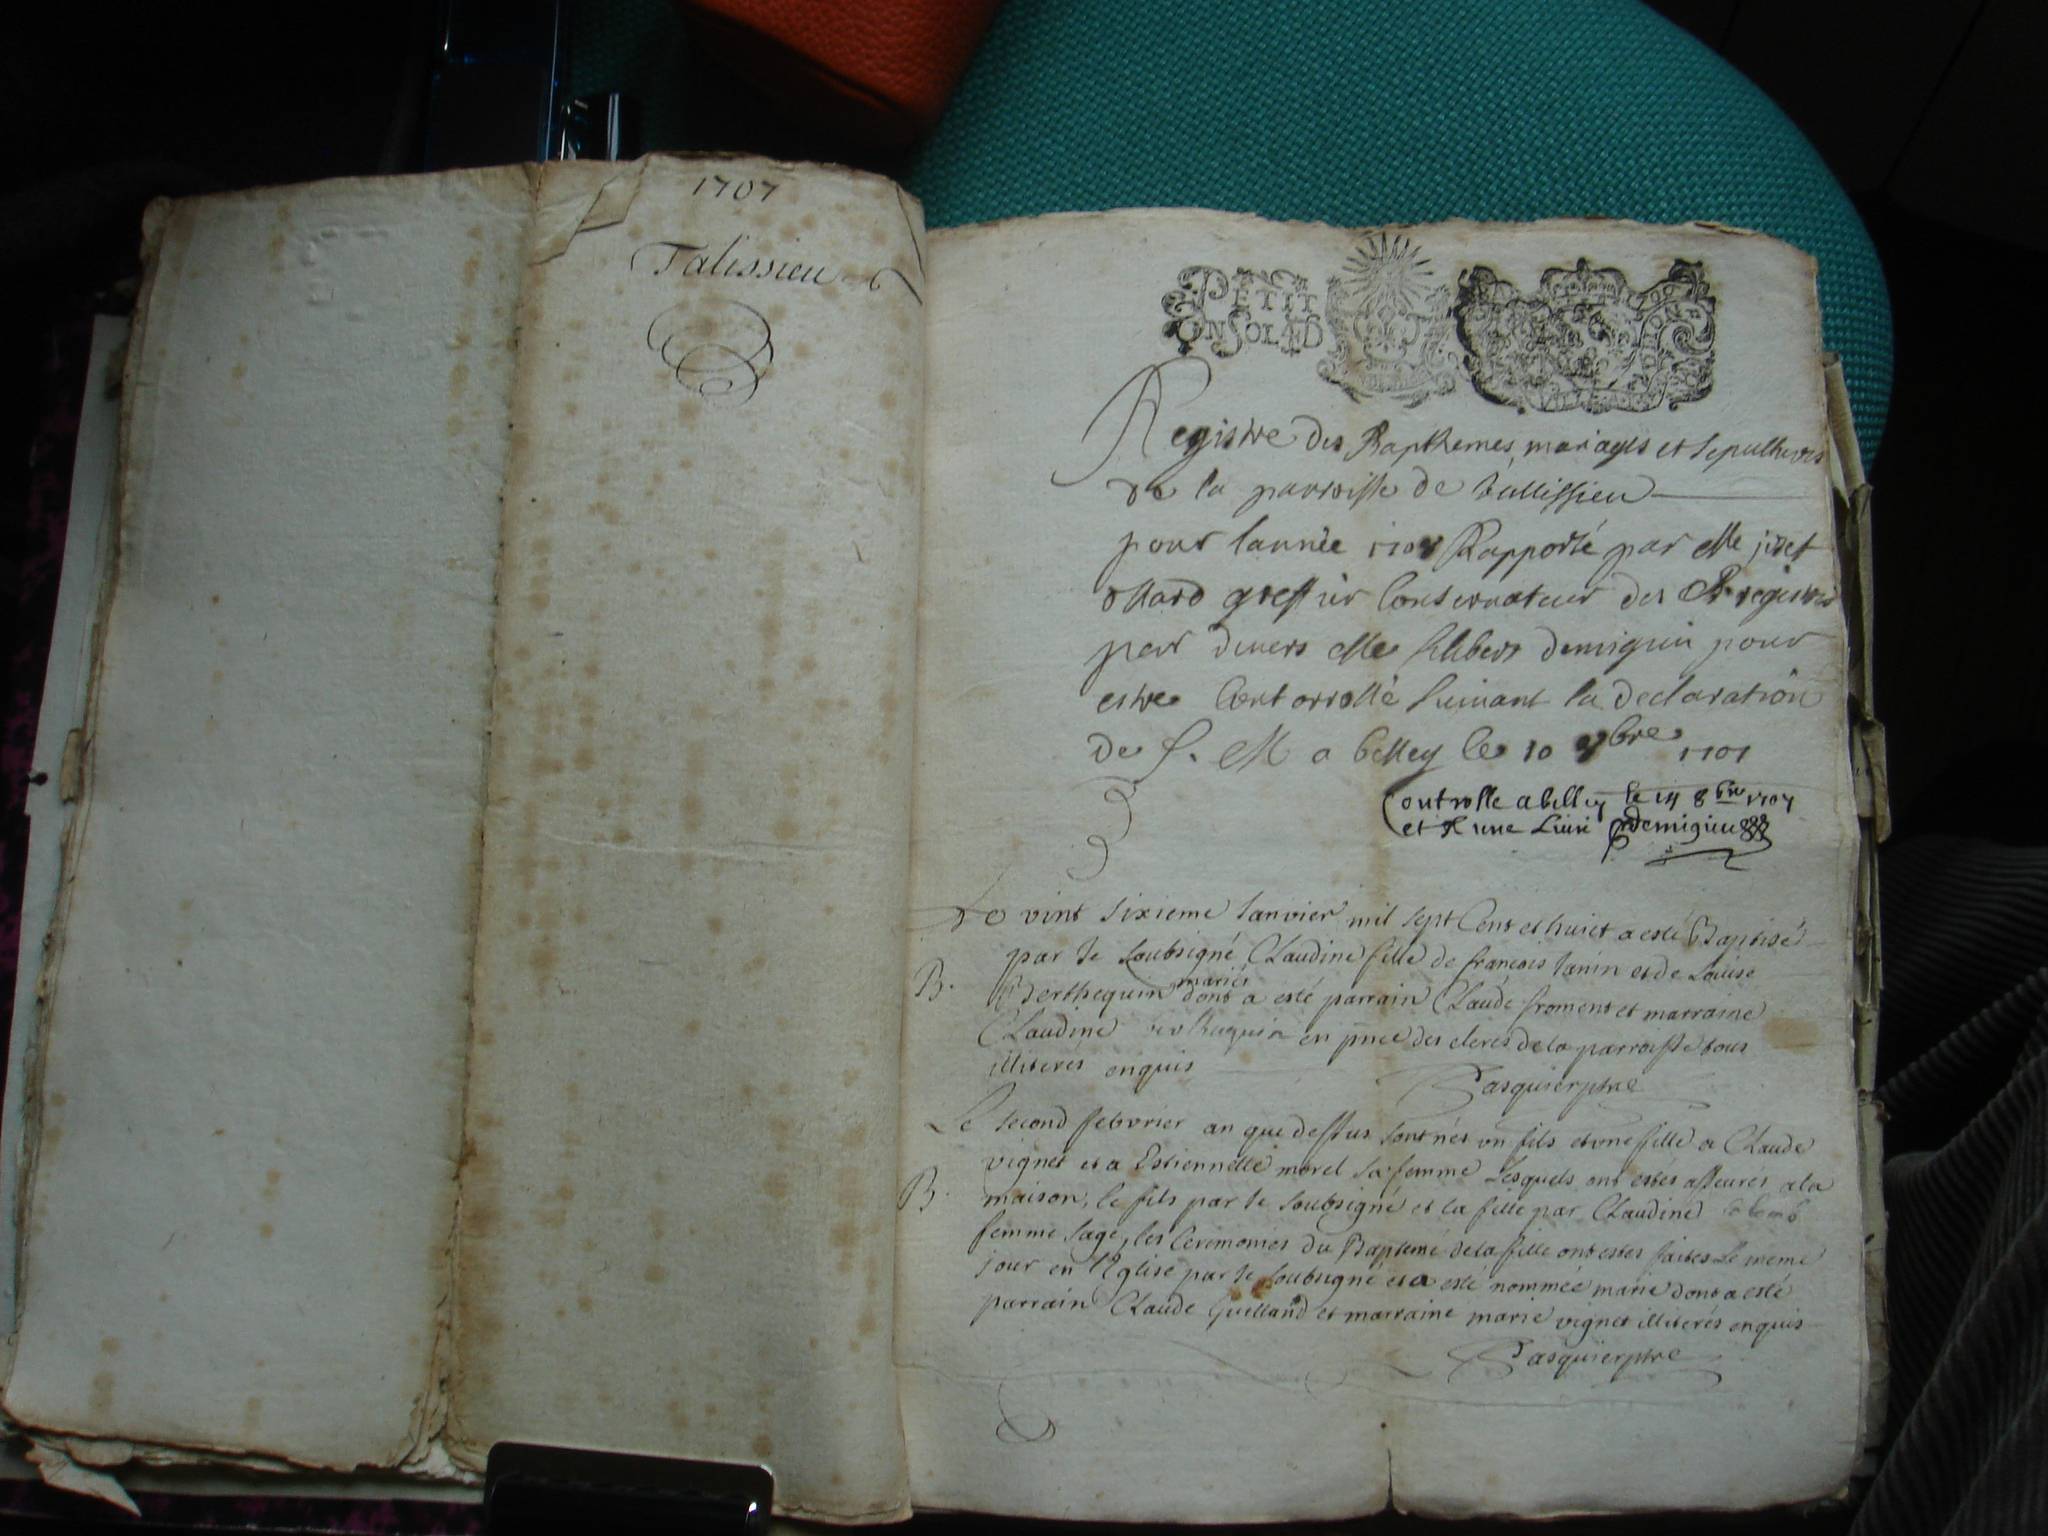 1707
Talissieu
PETIT
ON SOL
Registre des Bapthemes, mariages et sepultures
de la parroisse de tallissieu
pour lannée 1708 Rapporté par Me
greffier Conservateur des registres
par devers Me demigieu pour
estre Controrollé suivant la declaration
de S. M a belley le 10 bre 1707
Controlle a belley le 14 8bre 1707
et R une Livre demigieu
Le vint sixieme Janvier mil sept Cent et huict a esté Baptisé
par Je soubsigné Claudine fille de francois Janin et de Louise
B. Berthequin mariés dont a esté parrain Claude froment et marraine
Claudine en pnce des clercs de la parroisse tous
illiterés enquis
Pasquier ptre
Le second febvrier an que dessus sont nés un fils et une fille a Claude
vignet et a Estiennette morel sa femme Lesquels ont estés a la
B. maison, le fils par Je soubsigné et la fille par Claudine
femme sage, les Ceremonies du Baptemé de la fille ont estes faites Le meme
jour en l'Eglise par Je soubsigné et a esté nommée marie dont a esté
parrain Claude Guilland et marraine marie vignet illiterés enquis
Pasquier ptre